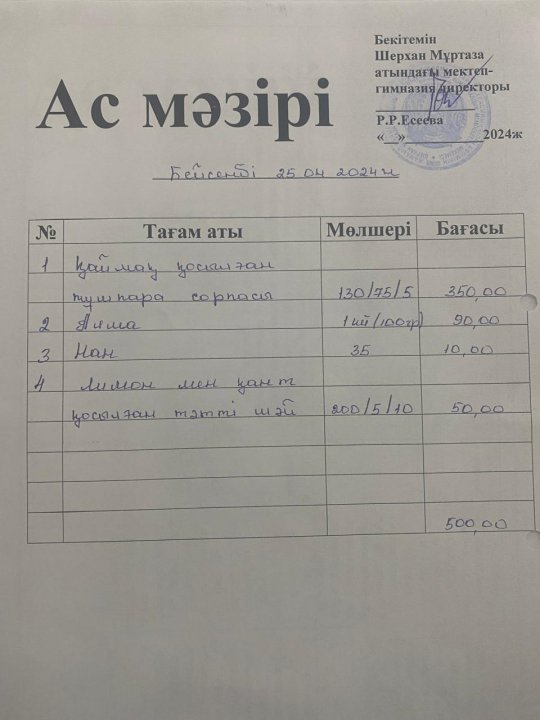 Бекітемін
Шерхан Мұртаза
атындағы мектеп-
гимназия директоры
Р.Р.Есеева
«__»__________2024ж
Ас мәзірі
Бейсенбі 25 04 2024ж
№ Тағам аты Мөлшері Бағасы
1 Қаймақ қосылған
тұшпара сорпасы 130/75/5 350,00
2 Алма 1 кй (100гр) 90,00
3 Нан 35 10,00
4 Лимон мен қант
қосылған тәтті шәй 200/5/10 50,00
500,00